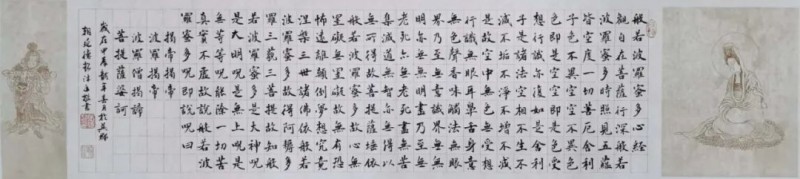 般若波羅蜜多心經
觀自在菩薩行深般若
波羅蜜多時照見五蘊
皆空度一切苦厄舍利
子色不異空空不異色
色即是空空即是色受
想行識亦復如是舍利
子是諸法空相不生不
滅不垢不淨不增不減
是故空中無色無受想
行識無眼耳鼻舌身意
無色聲香味觸法無眼
界乃至無意識界無無
明亦無無明盡乃至無
老死亦無老死盡無苦
集滅道無智亦無得以
無所得故菩提薩埵依
般若波羅蜜多故心無
罣礙無罣礙故無有恐
怖遠離顛倒夢想究竟
涅槃三世諸佛依般若
波羅蜜多故得阿耨多
羅三藐三菩提故知般
若波羅蜜多是大神呪
是大明呪是無上呪是
無等等呪能除一切苦
真實不虛故說般若波
羅蜜多呪即說呪曰
揭帝揭帝
波羅揭帝
波羅僧揭諦
菩提薩婆訶
歲在甲辰
敬書